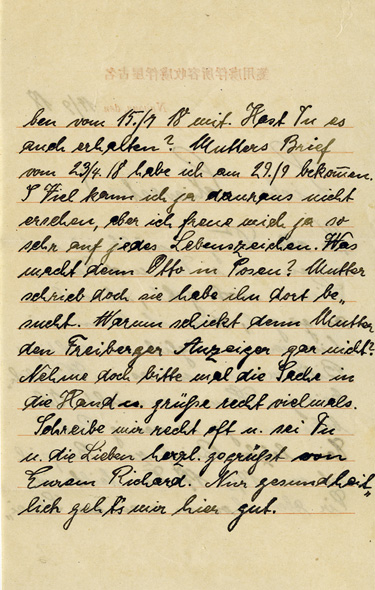 ben vom 15./9 18 mit. Hast Du es
auch erhalten? Mutters Brief
vom 23/4. 18 habe ich am 29./9 bekom̄en.
Viel kann ich ja daraus nicht
ersehen, aber ich freue mich ja so
sehr auf jedes Lebenszeichen. Was
macht denn Otto in Posen? Mutter
schrieb doch sie habe ihn dort be„
sucht. Warum schickt denn Mutter
den Freiberger Anzeiger gar nicht?
Nehme doch bitte mal die Sache in
die Hand u. grüße recht vielmals.
Schreibe mir recht oft u. sei Du
u. die Lieben herzl. gegrüßt von
Eurem Richard. Nur gesundheit„
lich geht's mir hier gut.